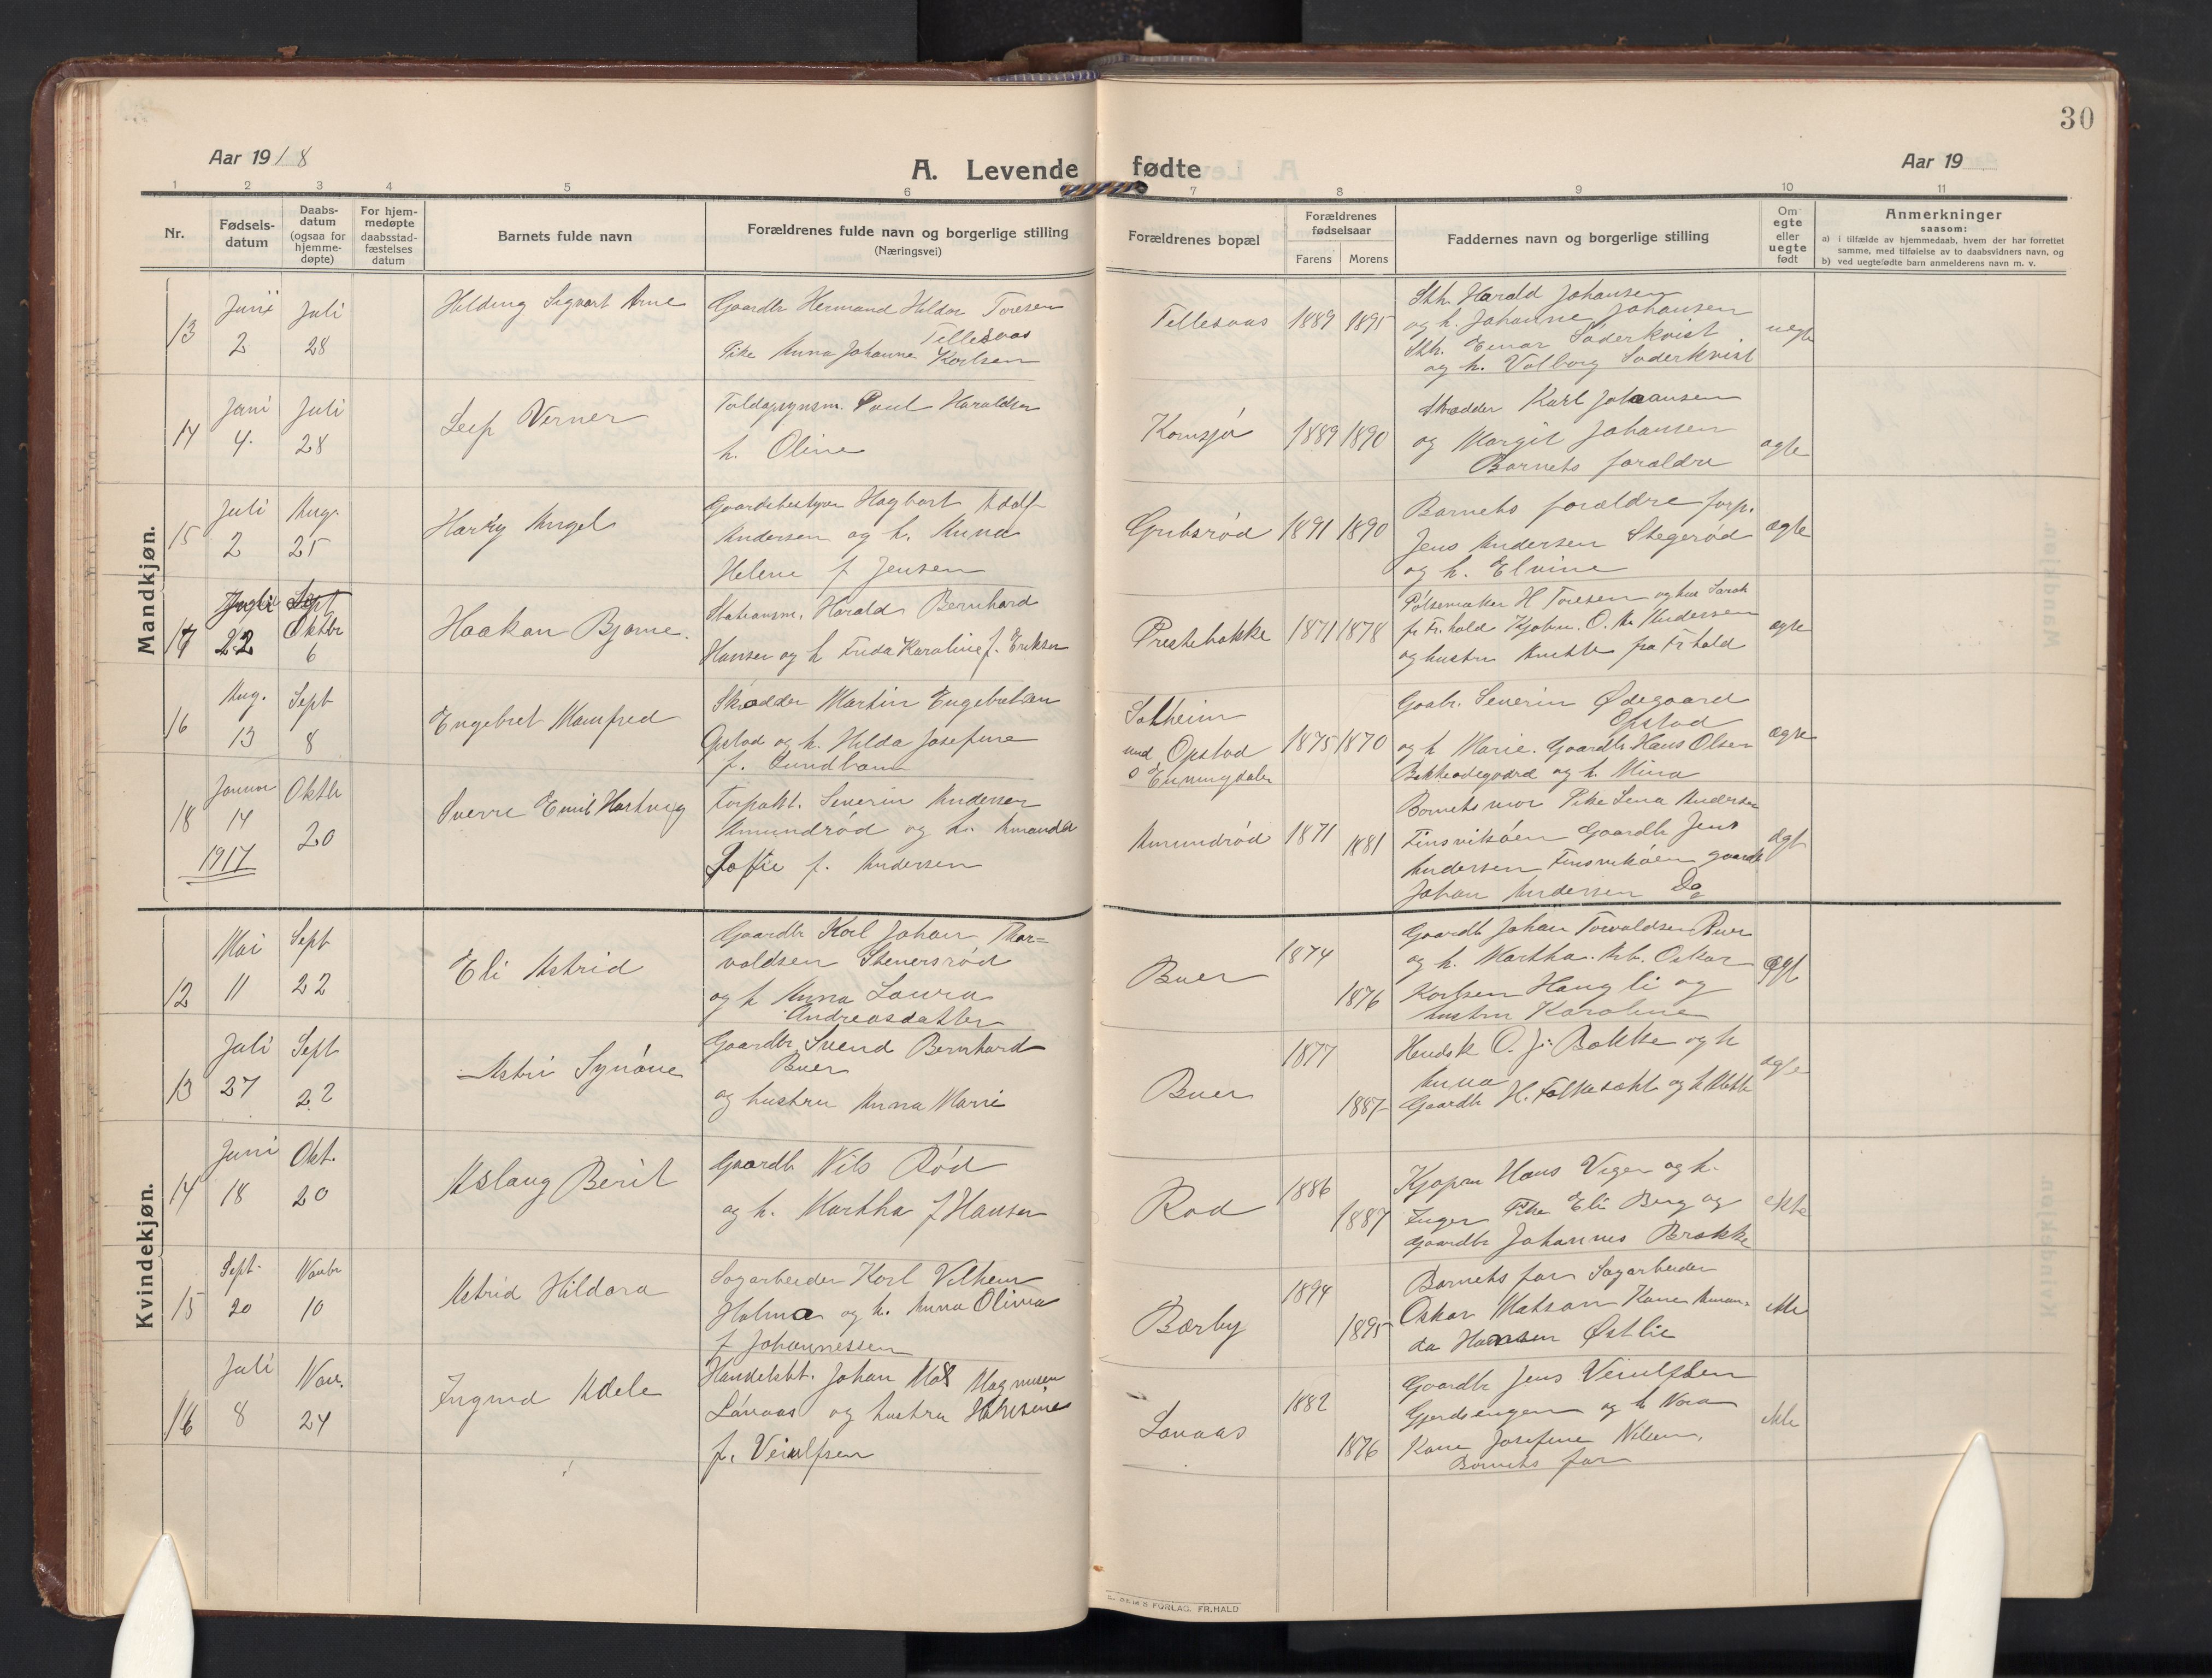 30
Aar 1918
A. Levende fødte
Aar 19
1 2 3 4 5 6 7 8 9 10 11
Nr.
Fødsels-
datum
Daabs-
datum
(ogsaa for
hjemme-
døpte)
For hjem-
medøpte
daabsstad-
fæstelses
datum
Barnets fulde navn
Forældrenes fulde navn og borgerlige stilling
(Næringsvei)
Forældrenes bopæl
Forældrenes
fødselsaar
Farens Morens
Faddernes navn og borgerlige stilling
Om
egte
eller
uegte
født
Anmerkninger
saasom:
a) i tilfælde av hjemmedaab, hvem der har forrettet
samme, med tilføielse av to daabsvidners navn, og
b) ved uegtefødte barn anmelderens navn m. v.
Mandkjøn.
13
Juni
2
Juli
28
Hilding Sigvart Arne
Gaardbr Hermand Hildor Toresen
Tellesvaas
Pike Anna Johanne Karlsen
Tellesvaas
1889 1895
Sth. Harald Johansen
og h. Johanne Johansen
Sth. Einar Søderkvist
og h. Valborg Søderkvist
uegte
14
Juni
4.
Juli
28
Leif Verner
Toldopsynsm. Paul Haraldsen
h. Oline
Kornsjø
1889 1890
Skrædder Karl Johansen
og Margit Johansen
Barnets forældre
ægte
15
Juli
2
Aug.
25
Harry Angel
Gaardsbestyrer Hagbart Adolf
Andersen og h. Anna
Helene f Jensen
Grubsrød
1891 1890
Barnets forældre forp.
Jens Andersen Stegerød
og h. Elvine
ægte
17
Juli
22
Oktbr
6
Haakon Bjarne.
Stationsm. Harald Bernhard
Hansen og h Frida Karoline f. Eriksen
Prestebakke
1871 1878
Pølsemaker H Toresen og hus Sarah
fr Fr.hald Kjøbm. O. M. Andersen
og hustru fra Fr hald
egte
16
Aug.
13
Sept
8
Engebret Manfred
Skrædder Martin Engebretsen
Opstad og h. Hilda Josefine
f. Lundbom
Solheim
und. Opstad
Enningdalen
1875 1870
Gaabr. Severin Ødegaard
Opstad
og h Marie. Gaardbr Hans Olsen
Bakkeødegaard og h. Mina
ægte
18
Januar
14
1917
Oktbr
20
Sverre Emil Hartvig
Forpakt. Severin Andersen
Amundrød og h. Amanda
Sofie f. Andersen
Amundrød
1871
1881
Barnets mor Pike Lina Andersen
Finsvikøen Gaardbr Jens
Andersen Finsvikøen gaardb
Johan Andersen Do
ægt
Kvindekjøn.
12
Mai
11
Sept
22
Eli Astrid
Gaardbr Karl Johan Thor=
valdsen Stenersrød
og h Anna Laura
Andreasdatter
Buer
1874
1876
Gaardb Johan Torvaldsen Buer
og h. Martha. Arb. Oskar
Karlsen Haugli og
hustru Karoline
ægt
13
Juli
27
Sept
22
Astri Synøve
Gaardbr Svend Bernhard
Buer
og hustru Anna Marie
Buer
1877
1887
Hendsk O. J. Bakke og h
Anna
Gaardb H. Folkesaht og h Mette
ægte
14
Juni
18
Okt.
20
Aslaug Berit
Gaardb Nils Rød
og h. Martha f Hansen
Rød
1886
1887
Kjøpm Hans Viger og h.
Inger Pike Eli Berg og
gaardbr Johannes Brække
ekte
15
Sept.
20
Novbr
10
Astrid Hildara
Sagarbeider Karl Vilhem
Holma og h. Anna Olivia
f Johannessen
Bærby
1894
1895
Barnets far Sagarbeider
Oskar Matson Kone Aman=
da Hansen Østlie
ekte
16
Juli
8
Nov.
24
Ingrid Adele
Handelsbt. Johan Magnusen
Lønaas og hustru
f. Veiulfsen
Lønaas
1882
1876
Gaardbr Jens Veiulfsen
Gjerdsengen og h Nora
Kone Josefine Nilsen,
Barnets far
ekte
FORLAG. FR.HALD